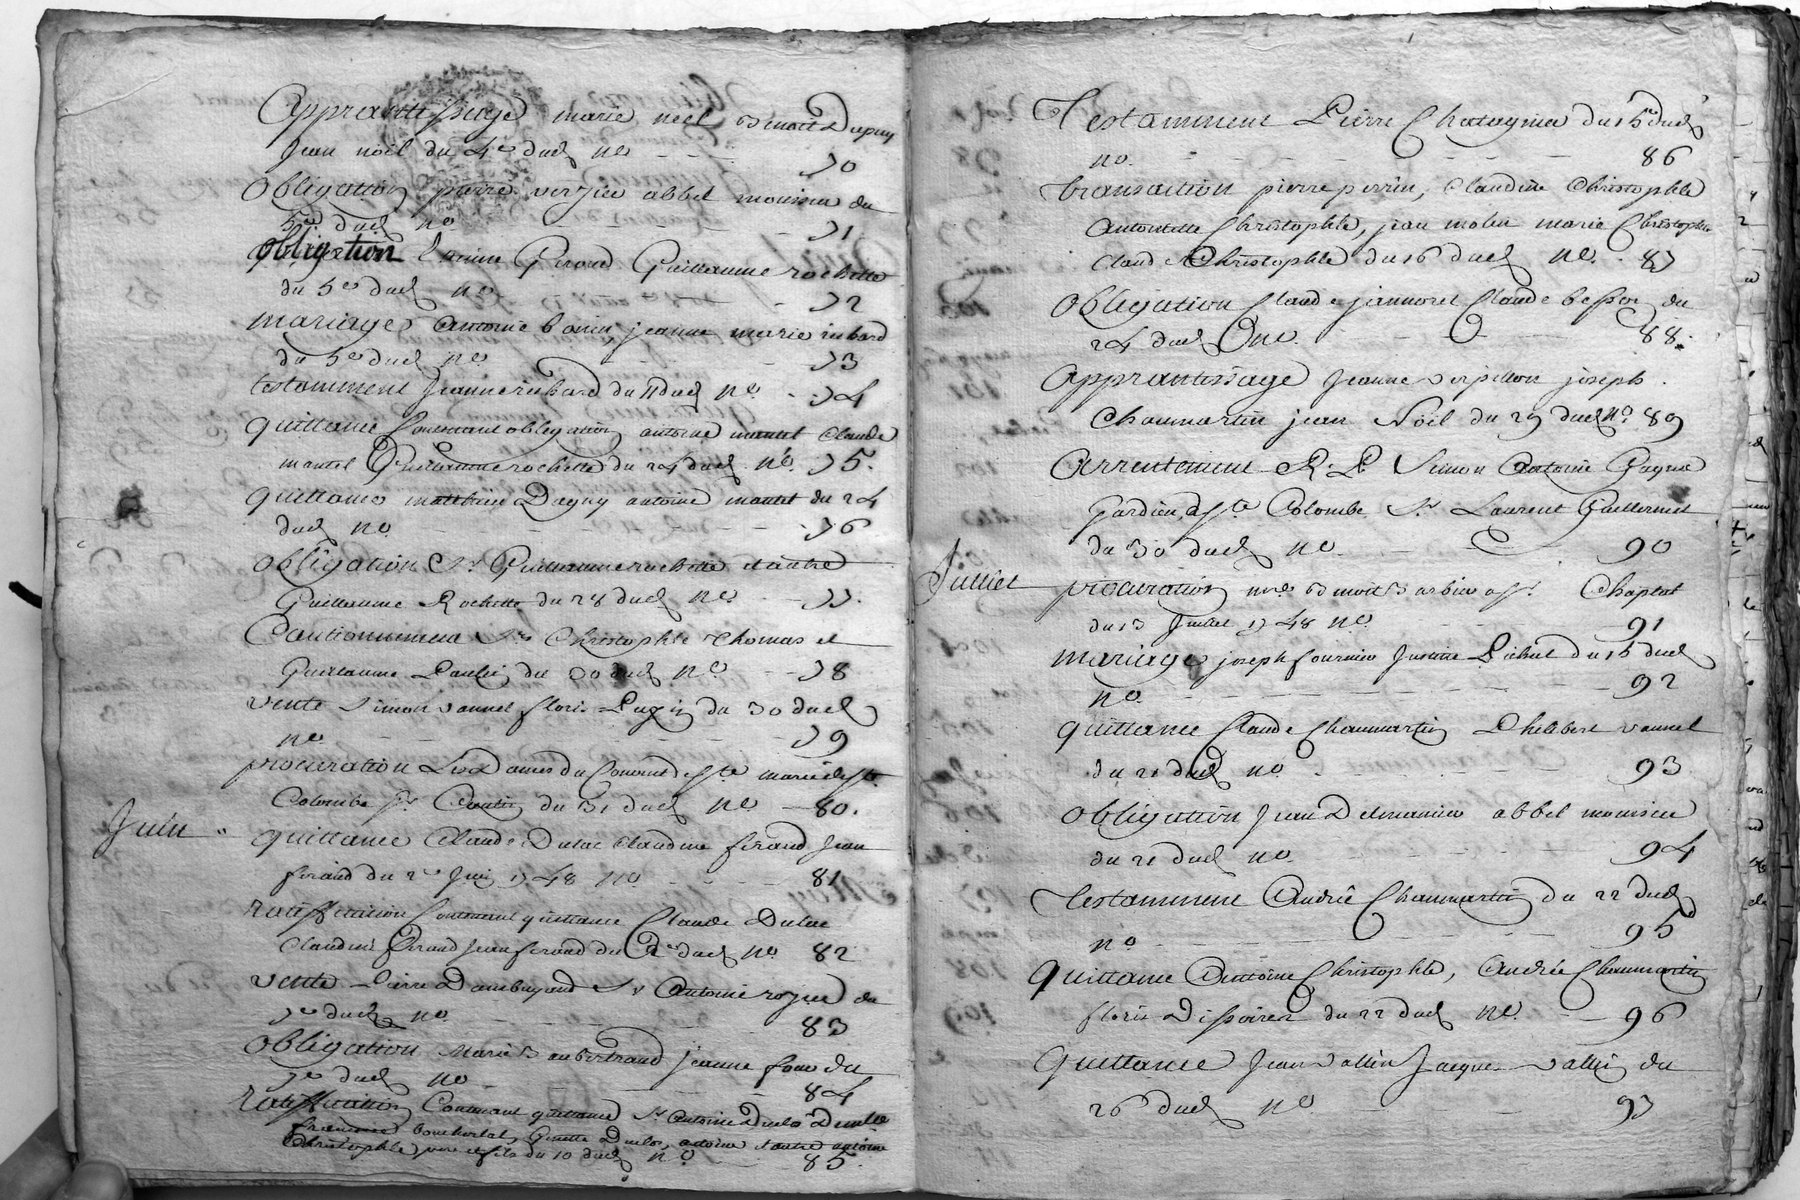 Apprantissage marie neel Benoit Dupuy
Jean noël du 4e dud no 70
Obligation pierre verzier abbel mounier du
5e dud no 71
obligation Giroud Guillaume rochette
du 5e dud no 72
mariage Antoine jeanne marie richard
du 5e dud no 73
testamment Jeanne richard du 11 dud no 74
quittance Contenant obligation antoine mantel Claude
mantel Guillaume rochette du 24 dud no 75.
quittance matthieu Dagny antoine mantel du 24
dud no 76
obligation Sr Guillaume rochette et autre
Guillaume Rochette du 28 dud no 77.
Cautionnement Sr Christophle Thomas et
Guillaume du 30 dud no 78
vente Simon vannel floris du 30 dud
no 79
procuration Les Dames du Couvent de Ste marie de Ste
Colombe Sr du 31 dud no 80.
Juin
quittance Claude Dulac Claudine feraud Jean
feraud du 2e Juin 1748 no 81
ratiffication Contenant quittance Claude Dulac
Claudine feraud Jean feraud du 2e dud no 82
vente Pierre Sr Antoine rozier du
7e dud no 83
obligation Marie jeanne du
7e dud no 84
ratiffication Contenant quittance Sr Antoine
antoine et autre antoine
Christophle pere et fils du 10 dud no 85.
Testamment Pierre Chatagnier du 15e dud
no. 86
transaction pierre perrin, Claudine Christophle
antoinette Christophle, jean molin marie Christophle
Claude Christophle du 16 dud no. 87
obligation Claude jannoret Claude besson du
24 dud no. 88.
apprantissage Jeanne verpillon joseph
Chaumartin jean Noël du 29 dud no 89
Arrentement R. P. Simon Antoine
Gardien de Ste Colombe Sr Laurent Guillermet
du 30 dud no 90
Julliet
procuration mre Benoit Barbier Chaptal
du 13 Julliet 1748 no. 91
mariage joseph fournier Justine Pichat du 15 dud
no. 92
quittance Claude Chaumartin Philibert vannel
du 21 dud no. 93
obligation Jean abbel mounier
du 21 dud no. 94
testamment André Chaumartin du 22 dud
no 95
quittance Antoine Christophle, Andrée Chaumartin
floris du 22 dud no. 96
quittance Jean vallin Jacques vallin du
26 dud no 97